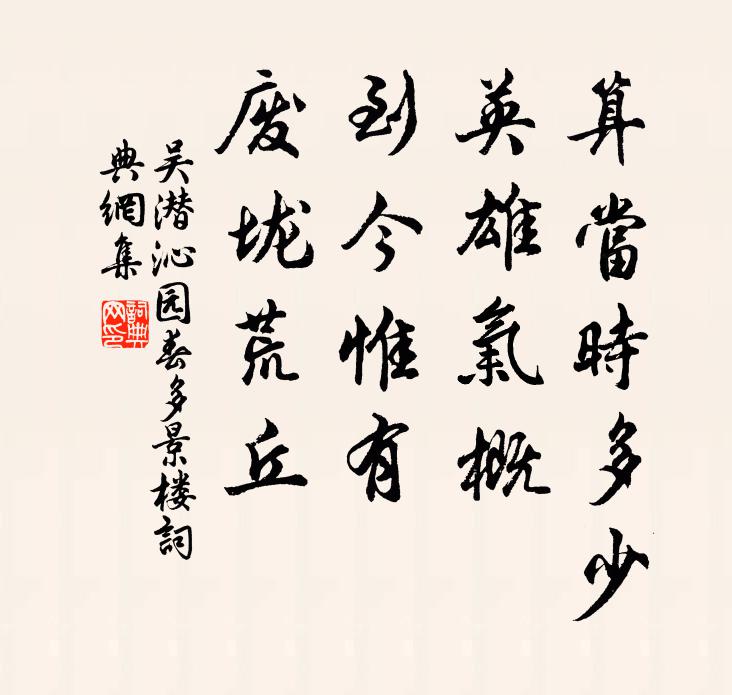 算當時多少
英雄氣概
到今惟有
废垅荒丘
吴潜沁园春多景楼詞
典網集
詞典
网印